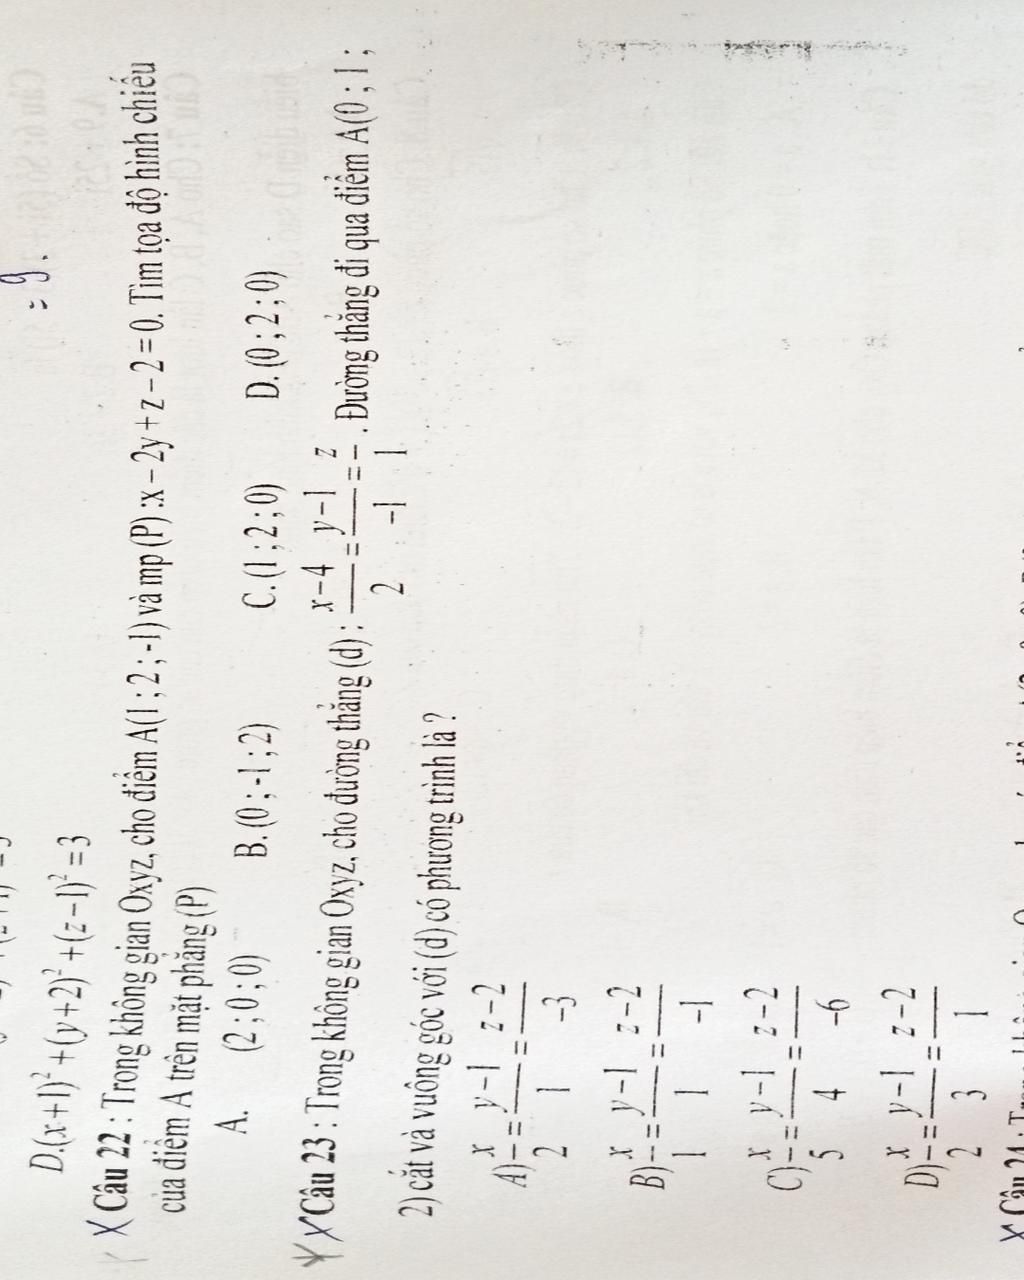 = 9.
D.(x+1)² + (y+2)² + (z−1)² = 3
X Câu 22 : Trong không gian Oxyz, cho điểm A(1 ; 2 ; -1) và mp (P) :x − 2y + z − 2 = 0. Tìm tọa độ hình chiếu
của điểm A trên mặt phẳng (P)
A. (2 ; 0 ; 0) B. (0 ; -1 ; 2) C. (1 ; 2 ; 0) D. (0 ; 2 ; 0)
X Câu 23 : Trong không gian Oxyz, cho đường thẳng (d) : (x−4)/2 = (y−1)/−1 = z/1 . Đường thẳng đi qua điểm A(0 ; 1 ;
2) cắt và vuông góc với (d) có phương trình là ?
A) x/2 = (y−1)/1 = (z−2)/−3
B) x/1 = (y−1)/1 = (z−2)/−1
C) x/5 = (y−1)/4 = (z−2)/−6
D) x/2 = (y−1)/3 = (z−2)/1
X Câu 24 :